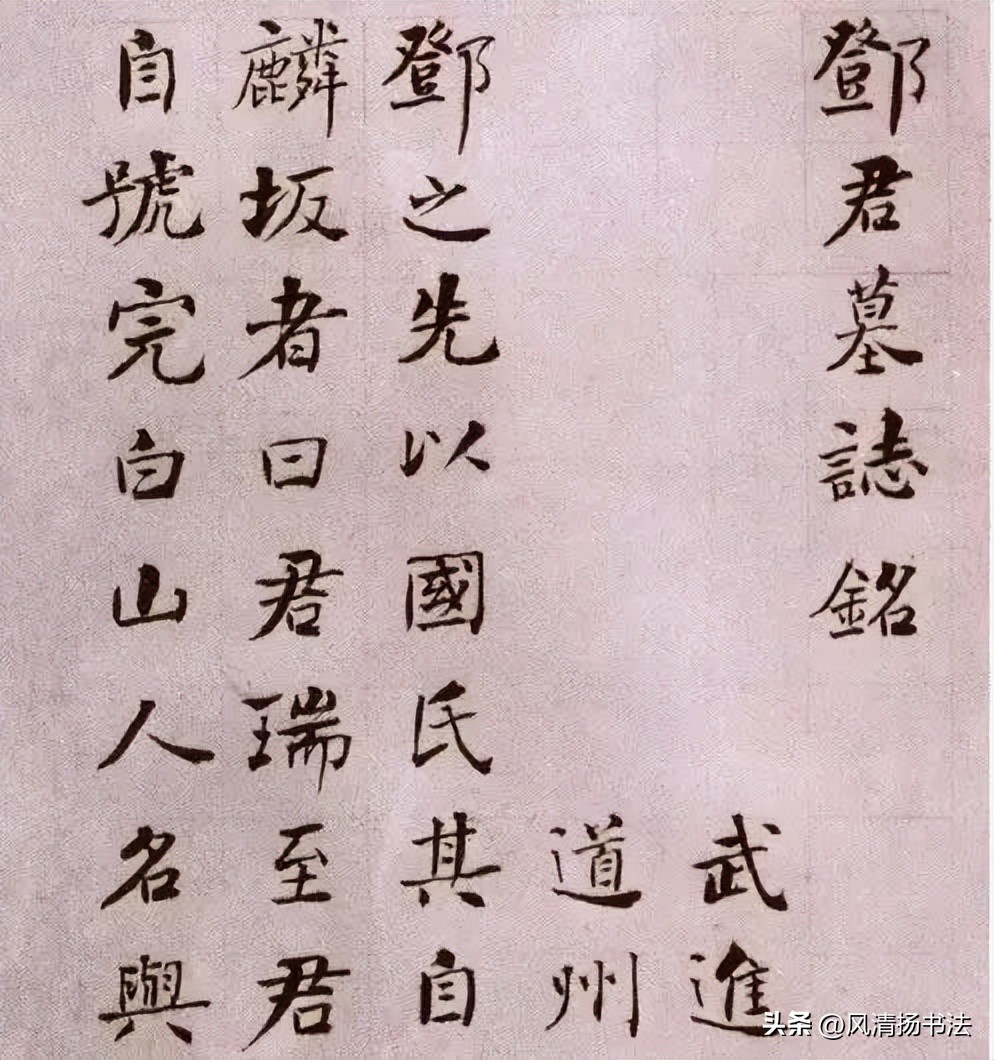 鄧君墓誌銘
武進
道州
鄧之先以國氏其自
麟坂者曰君瑞至君
自號完白山人名與
头条 @风清扬书法